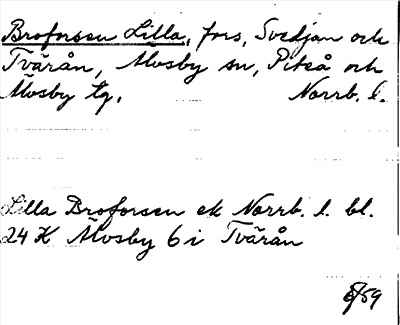 Broforsen Lilla, fors, Svedjan och
Tvärån, Älvsby sn, Piteå och
Älvsby tg, Norrb. l.
Lilla Broforsen ek Norrb. l. bl.
24 K Älvsby 6 i Tvärån
/59